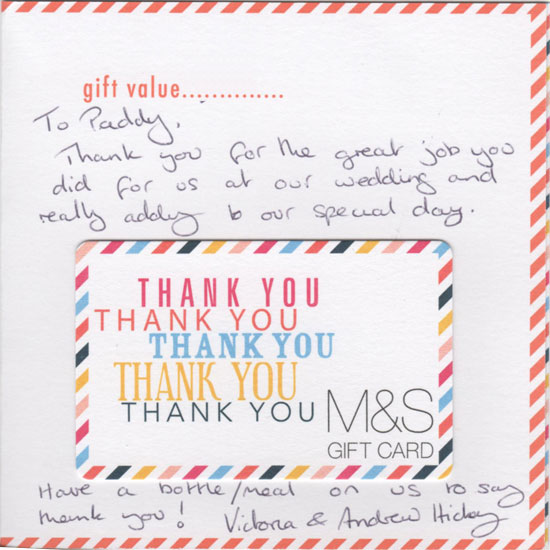 gift value..............
To Paddy,
Thank you for the great job you
did for us at our wedding and
really adding to our special day.
THANK YOU
THANK YOU
THANK YOU
THANK YOU
THANK YOU M&S
GIFT CARD
Have a bottle/meal on us to say
thank you! Victoria & Andrew Hickey